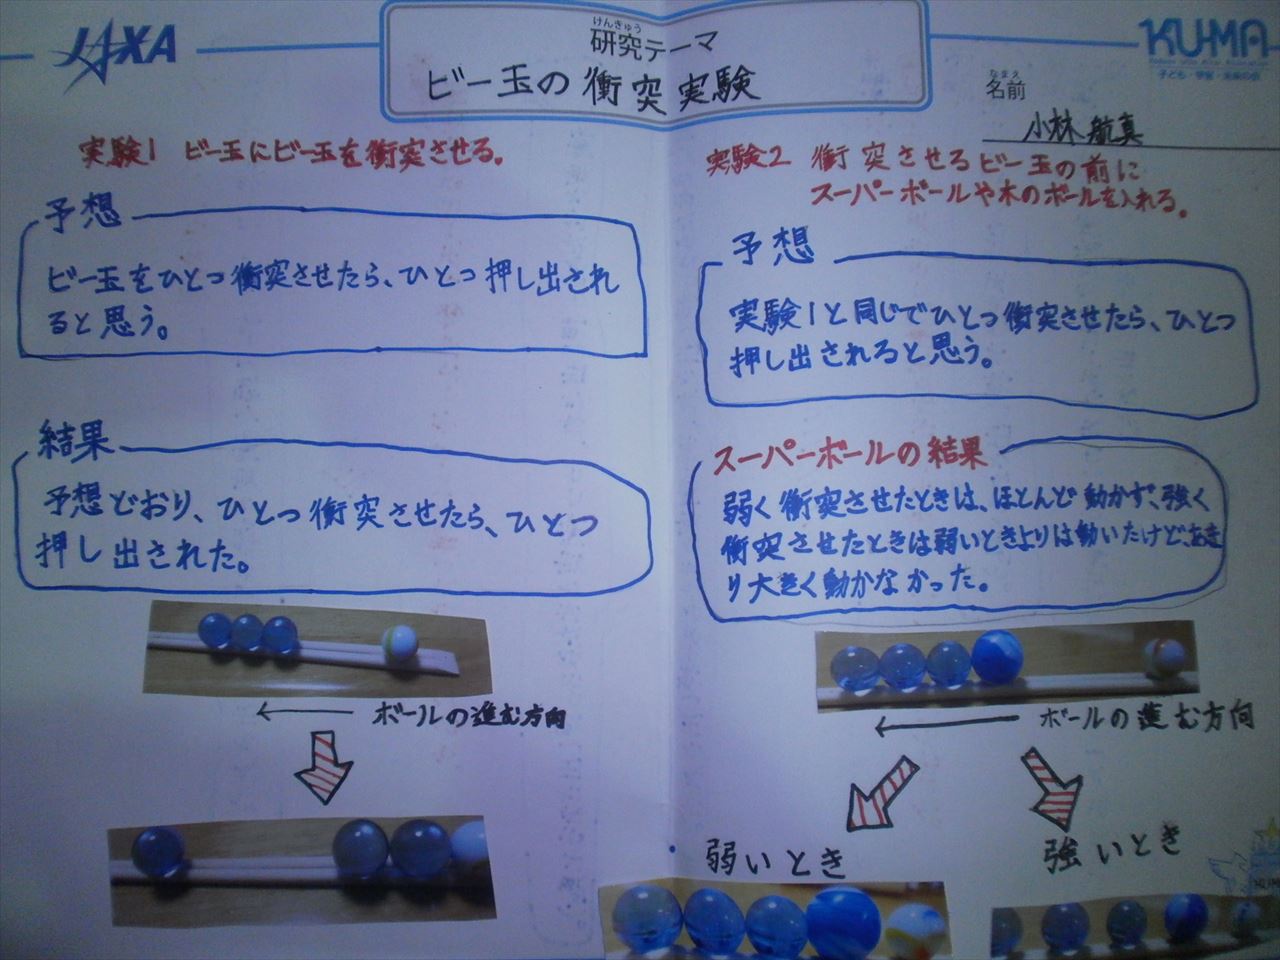 JAXA
けんきゅう
研究テーマ
ビー玉の衝突実験
KU-MA
子ども・宇宙・未来の会
なまえ
名前
小林 航真
実験1 ビー玉にビー玉を衝突させる。
予想
ビー玉をひとつ衝突させたら、ひとつ押し出され
ると思う。
結果
予想どおり、ひとつ衝突させたら、ひとつ
押し出された。
ボールの進む方向
実験2 衝突させるビー玉の前に
スーパーボールや木のボールを入れる。
予想
実験1と同じでひとつ衝突させたら、ひとつ
押し出されると思う。
スーパーボールの結果
弱く衝突させたときは、ほとんど動かず、強く
衝突させたときは弱いときよりは動いたけど、あま
り大きく動かなかった。
ボールの進む方向
弱いとき
強いとき